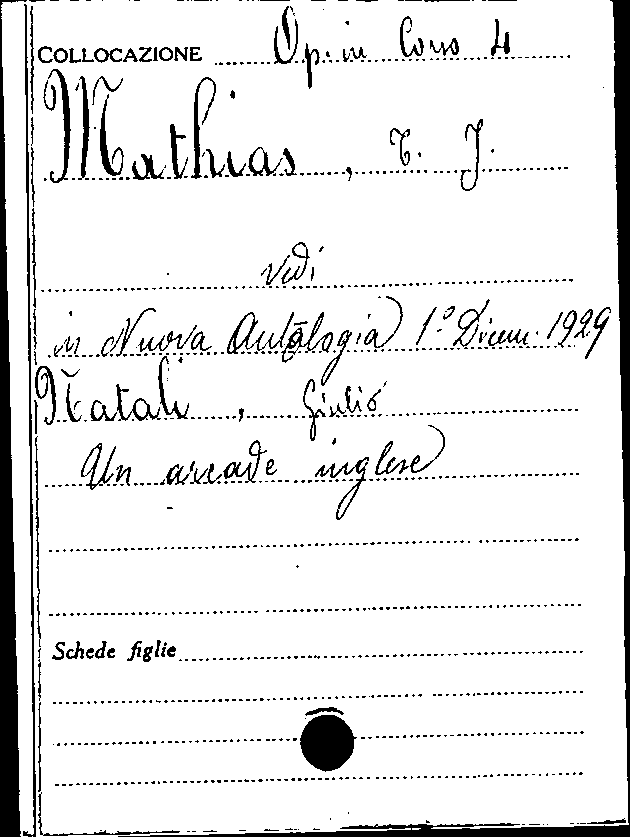 COLLOCAZIONE Op. in Corso 4
Mathias, T. J.
Vedi
in Nuova Antologia 1.º Dicem. 1929
Natali, Giulio
Un arcade inglese
Schede figlie